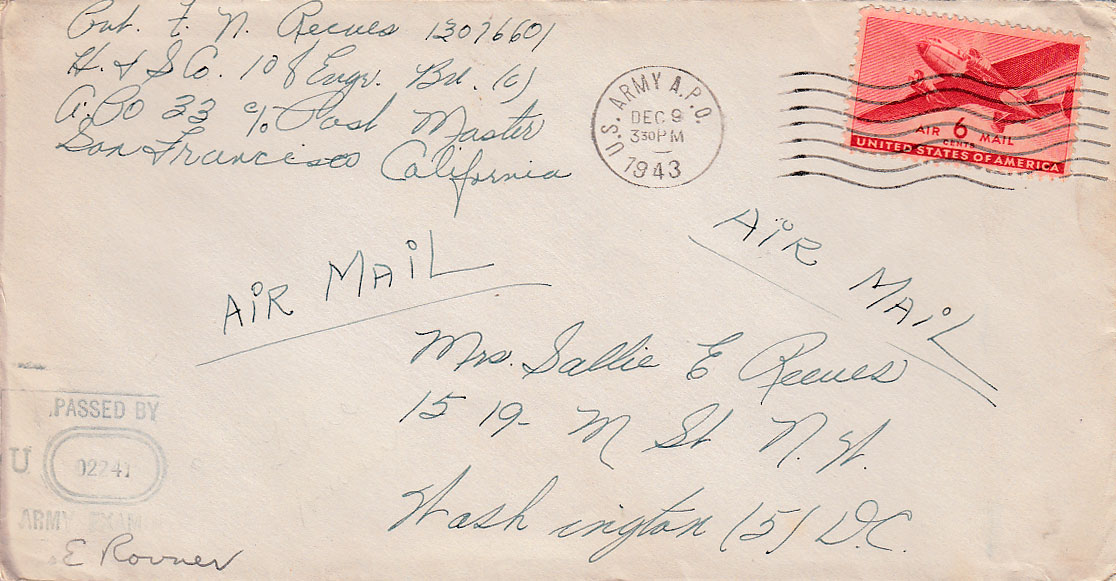 Pvt. F. N. Reeves 13076601
H. & S Co. 108 Engr. Bn. (c)
A.P.O 33 c/o Post Master
San Francisco
California
U.S. ARMY A.P.O.
DEC 9
330 PM
1943
AIR 6 MAIL
CENTS
UNITED STATES OF AMERICA
AIR MAIL
AIR MAIL
Mrs. Sallie E Reeves
15 19- M St N.W.
Washington (5) D.C.
PASSED BY
U 02241
ARMY EXAM
E Rovner